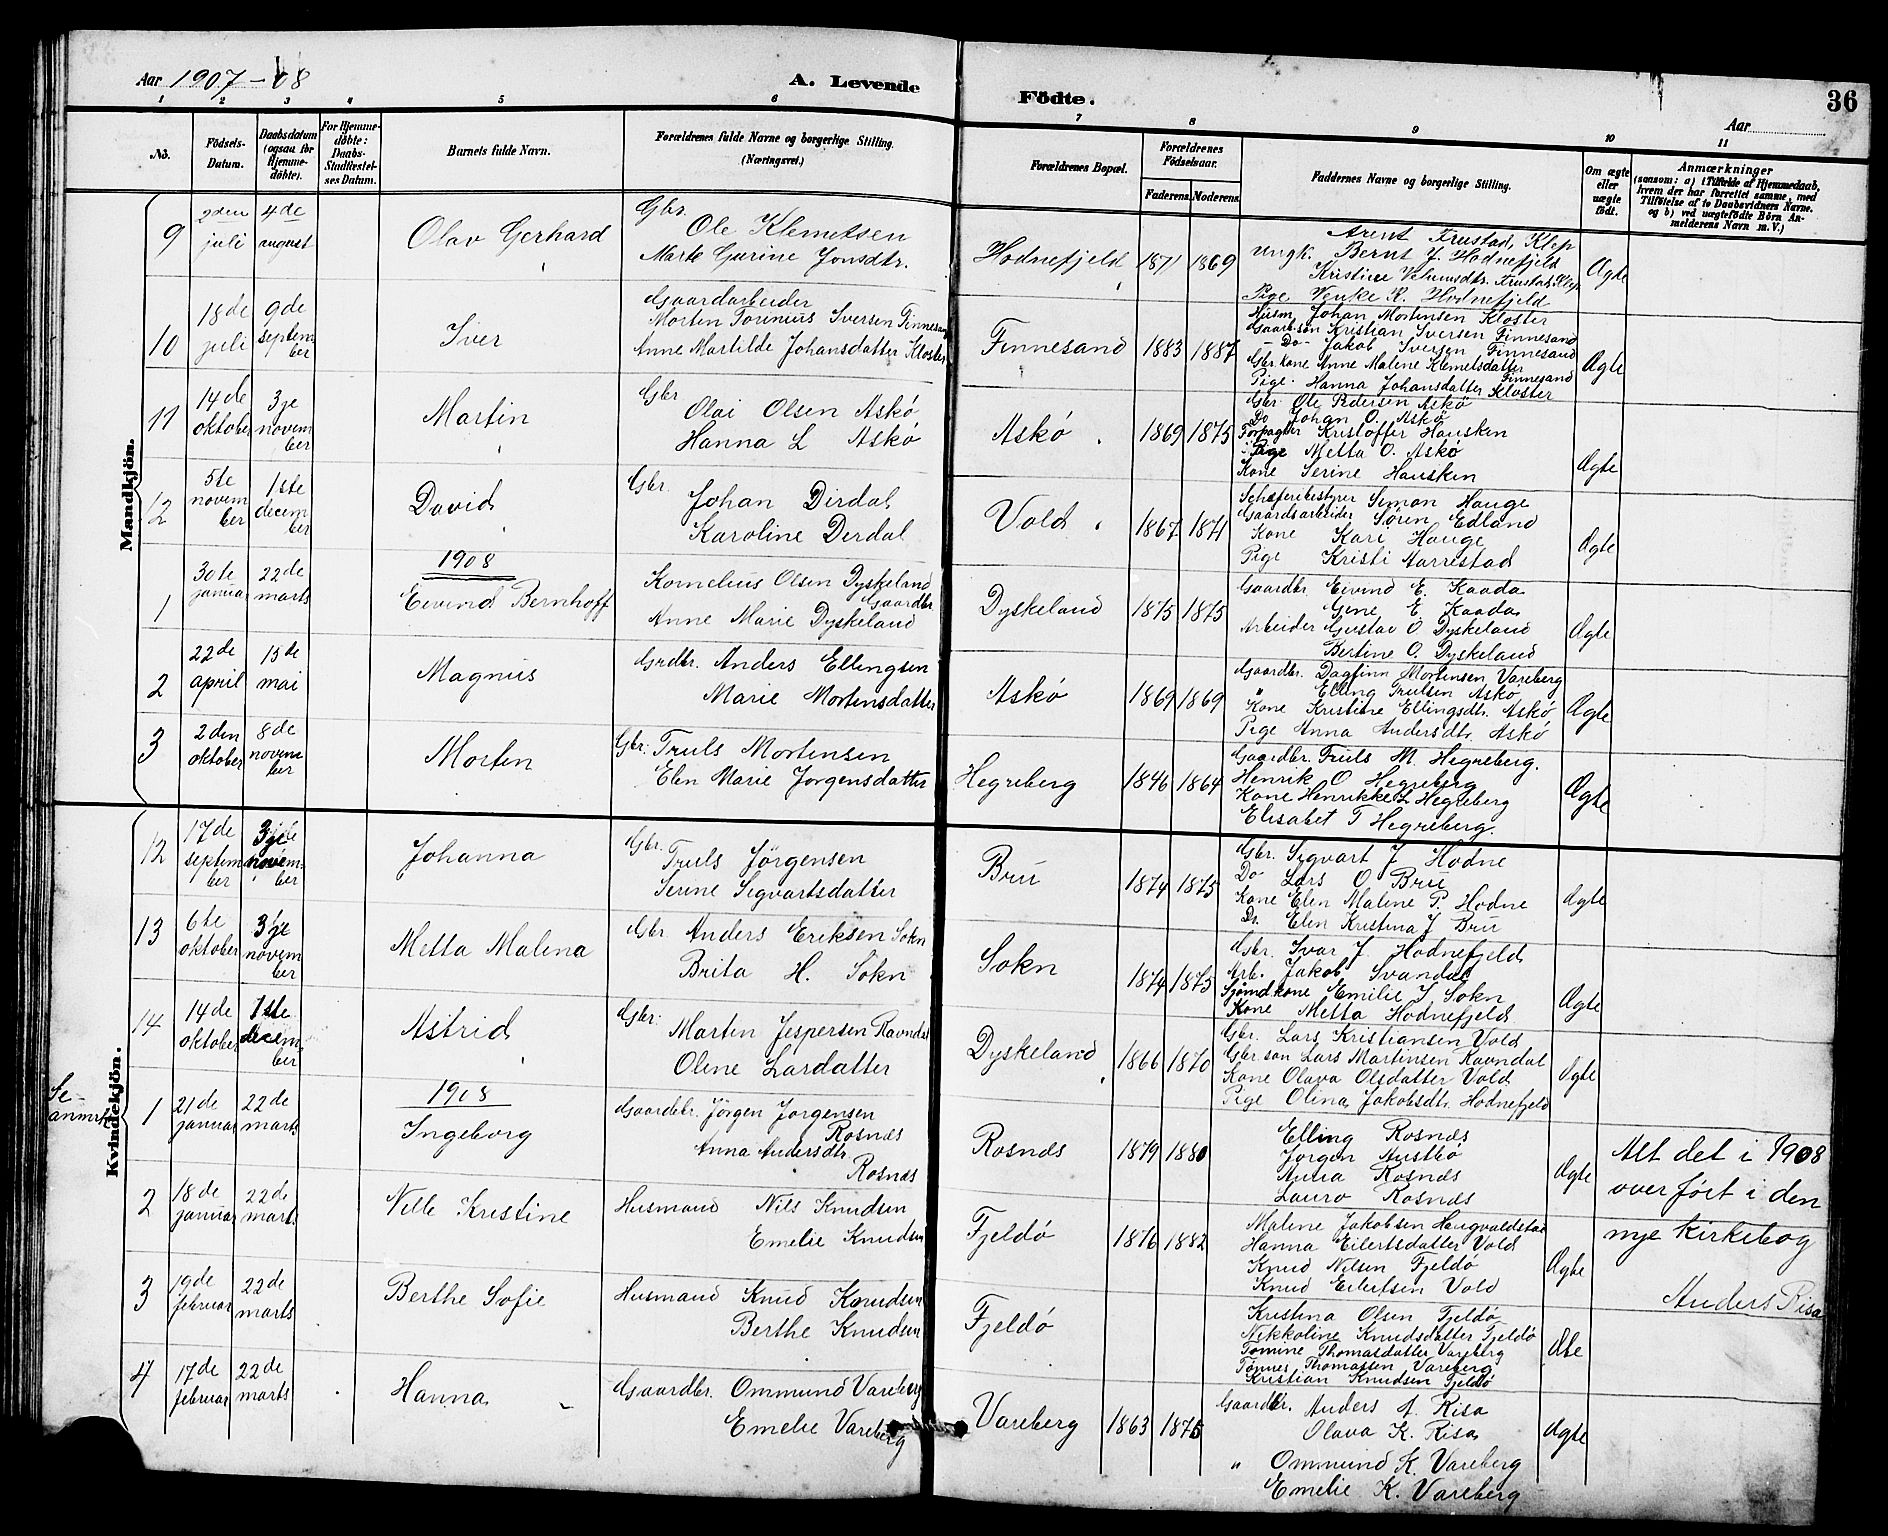 Aar 1907-08
A. Levende
Födte.
36
Aar
1 2 3 4 5 6 7 8 9 10 11
No.
Födsels-Datum.
Daabsdatum (ogsaa for Hjemme-döbte).
For Hjemme-döbte: Daabs-Stadfæstel-ses Datum.
Barnets fulde Navn.
Forældrenes fulde Navne og borgerlige Stilling. (Næringsvei.)
Forældrenes Bopæl.
Forældrenes Födselsaar.
Faderens. Moderens.
Faddernes Navne og borgerlige Stilling.
Om ægte eller uægte födt.
Anmærkninger
(saasom: a) i Tilfælde af Hjemmedaab, hvem der har forrettet samme, med Tilföielse af to Daabsvidners Navne. og b) ved uægtefödte Börn An-melderens Navn m. V.)
Mandkjön.
9 2den juli 4de august Olav Gerhard Gbr. Ole Klemetsen
Marte Gurine Jonsdtr.
Hodnefjeld 1871 1869
Arent Frustad, Klep
Ungk. Bernt J. Hodnefjeld
Pige Venke K. Hodnefjeld
Ægte
10 18de juli 9de septem ber Iver Gaardarbeider
Morten Torinius Iversen Finnesand
Anne Martilde Johansdatter Kloster
Finnesand 1883 1887
Husm Johan Mortensen Kloster
Gaardsøn Kristian Iversen Finnesand
-Do- Jakob Iversen Finnesand
Gbr. kone Anne Malene Klemetsdatter Finnesand
Pige. Hanna Johansdatter Kloster
Ægte
11 14de oktober 3je novem ber Martin Gbr Olai Olsen Askø
Hanna L Askø
Askø 1869 1875
Gbr Ole Pedersen Askø
Do Johan O. Askø
Forpagter Kristoffer Hausken
Pige Metta O. Askø
Kone Serine Hausken
Ægte
12 5te novem ber 1ste decem ber David Gbr. Johan Dirdal
Karoline Derdal
Vold 1867 1871
Schæferibestyrer Simon Hauge
Gaardsarbeider Søren Edland
Kone Kari Hauge
Pige Kristi Aarrestad
Ægte
1908
1 30te januar 22de marts Eivind Bernhoff Kornelius Olsen Dyskeland
Gaardbr.
Anne Marie Dyskeland
Dyskeland 1875 1875
Gaardbr. Eivind E. Kaada
Gine E Kaada
Arbeider Gustav O Dyskeland
Bertine O. Dyskeland
Ægte
2 22de april 15de mai Magnus Grdbr. Anders Ellingsen
Marie Mortensdatter
Askø 1869 1869
Gaardbr. Dagfinn Mortensen Vareberg
" Elling Trulsen Askø
Kone Kristine Ellingsdtr. Askø
Pige Anna Andersdtr. Askø
Ægte
3 2den oktober 8de novem ber Morten Gbr. Truls Mortensen
Elen Marie Jørgensdatter
Hegreberg 1846 1864
Gaardbr. Truls M. Hegreberg.
Henrik O Hegreberg
Kone Henrikke L Hegreberg
Elisabet T Hegreberg.
Ægte
Kvindekjön.
12 17de septem ber 3je novem ber Johanna Gbr. Truls Jørgensen
Serine Sigvartsdatter
Bru 1874 1875
Gbr. Sigvart J Hodne
Do Lars O Bru
Kone Elen Malene P. Hodne
Do. Elen Kristina J Bru
Ægte
13 6te oktober 3je novem ber Metta Malena Gbr. Anders Eriksen Sokn
Brita H. Sokn
Sokn 1874 1875
Gbr. Ivar J. Hodnefjeld
Arb. Jakob Svandal
Sjømdkone Emilie J Sokn
Kone Metta Hodnefjeld
Ægte
14 14de oktober 1ste decem ber Astrid Gbr. Martin Jespersen Ravndal
Oline Larsdatter
Dyskeland 1866 1870
Gbr. Lars Kristiansen Vold
Gbr søn Lars Martinsen Ravndal
Kone Olava Olsdatter Vold
Pige Olina Jakobsdtr. Hodnefjeld
Ægte
1908
Se anmrk
1 21de januar 22de marts Ingeborg Gaardbr. Jørgen Jørgensen Rosnæs
Anna Andersdtr. Rosnæs
Rosnæs 1879 1880
Elling Rosnæs
Jørgen Austbø
Anna Rosnæs
Laura Rosnæs
Ægte
Alt det i 1908
overført i den
nye kirkebog
Anders Risa
2 18de januar 22de marts Nille Kristine Husmand Nils Knudsen
Emelie Knudsen
Fjeldø 1876 1882
Malene Jakobsen Haugvaldstad
Hanna Eilertsdatter Vold
Knud Nilsen Fjeldø
Knud Eilertsen Vold
Ægte
3 19de februar 22de marts Berthe Sofie Husmand Knud Knudsen
Berthe Knudsen
Fjeldø
Kristina Olsen Fjeldø
Nikkoline Knudsdatter Fjeldø
Tomine Thomasdatter Vareberg
Tønnes Thomassen Vareberg
Kristian Knudsen Fjeldø
4 17de februar 22de marts Hanna Gaardbr. Ommund Vareberg
Emelie Vareberg
Vareberg 1863 1875
Gaardbr. Anders A. Risa
Olava K. Risa
" Ommund K. Vareberg
Emelie K. Vareberg
Ægte